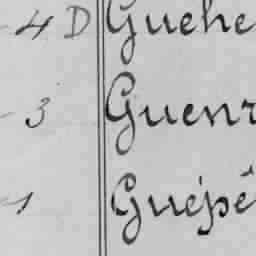 - 4 D Guehe
- 3 Guenr
- 1 Guépê